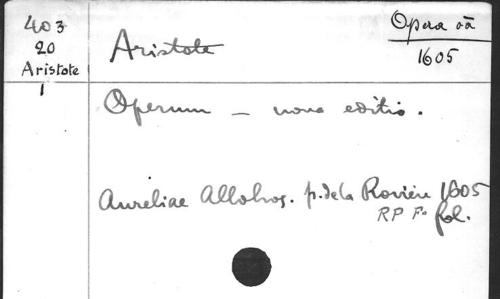 403
20
Aristote
1
Aristote
Opera oā
1605
Operum — nova editio.
Aureliae Allobrog. p. de la Rovière 1605
RP Fo fol.